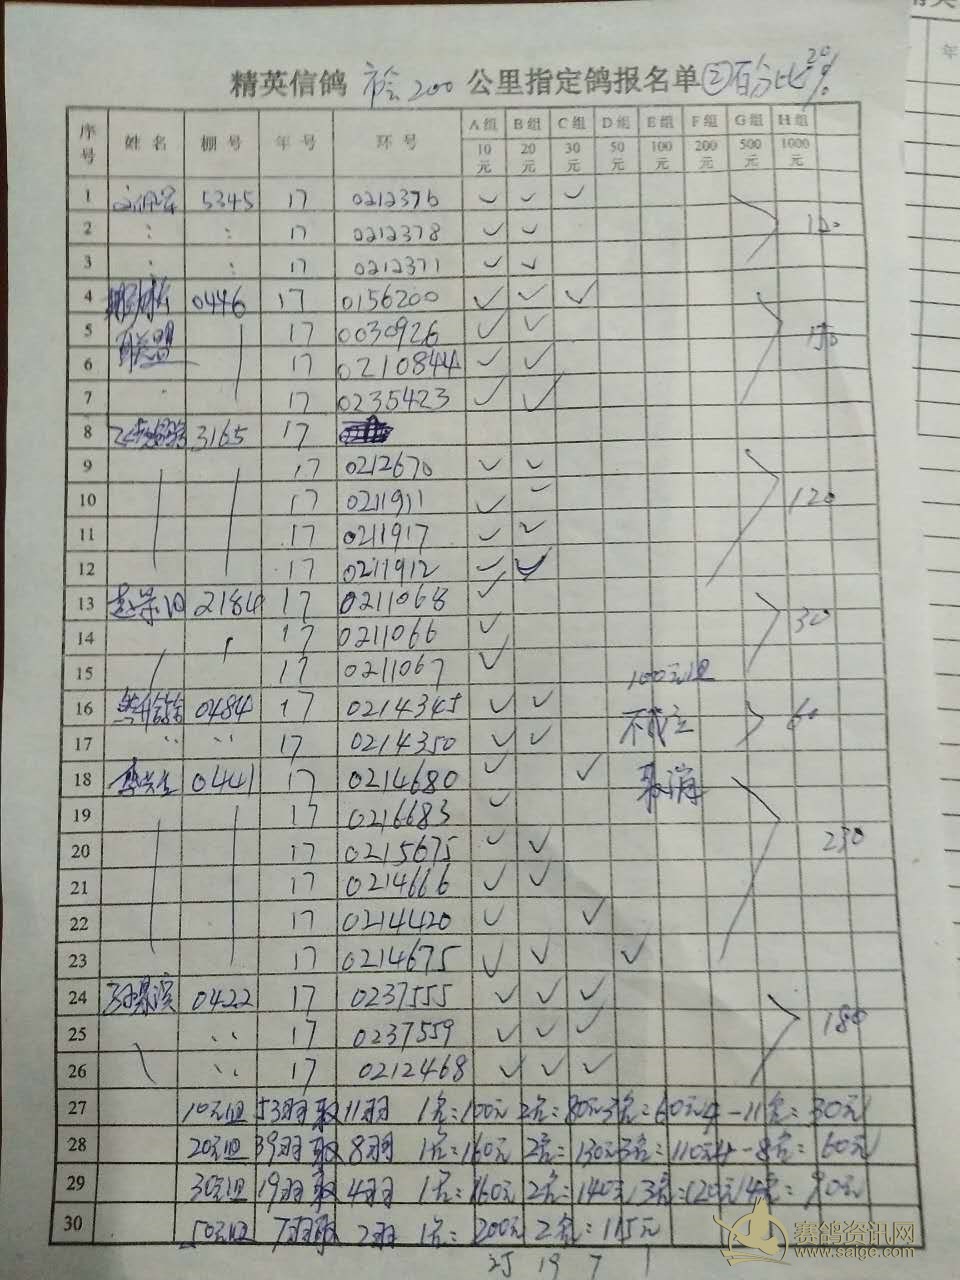 精英信鸽 市会200 公里指定鸽报名单 ② 百分比20%
序号 姓名 棚号 年号 环号 A组 B组 C组 D组 E组 F组 G组 H组
10元 20元 30元 50元 100元 200元 500元 1000元
1 5345 17 0212376 ✓ ✓ ✓
2 : : 17 0212378 ✓ ✓ 120
3 : : 17 0212371 ✓ ✓
4 0446 17 0156200 ✓ ✓ ✓
5 联盟 17 0030926 ✓ ✓
6 17 0210844 ✓ ✓
7 17 0235423 ✓ ✓
8 3165 17
9 17 0212670 ✓ ✓
10 17 0211911 ✓ ✓ 120
11 17 0211917 ✓ ✓
12 17 0211912 ✓ ✓
13 2184 17 0211068 ✓
14 17 0211066 ✓ 30
15 17 0211067 ✓ 100元组
16 0484 17 0214345 ✓ ✓ 不成立 60
17 17 0214350 ✓ ✓
18 0441 17 0214680 ✓ ✓ 取消
19 17 0216683 ✓
20 17 0215675 ✓ ✓ 230
21 17 0214666 ✓ ✓
22 17 0214420 ✓ ✓
23 17 0214675 ✓ ✓ ✓
24 0422 17 0237555 ✓ ✓ ✓
25 17 0237559 ✓ ✓ ✓ 180
26 17 0212468 ✓ ✓ ✓
27 10元组 53羽取11羽 1名=100元 2名=80元 3名=60元 4-11名=30元
28 20元组 39羽取8羽 1名=160元 2名=130元 3名=110元 4-8名=60元
29 30元组 19羽取4羽 1名=160元 2名=140元 3名=120元 4名=90元
30 50元组 7羽取2羽 1名=200元 2名=115元
19 7 1
赛鸽资讯网
www.saigc.com